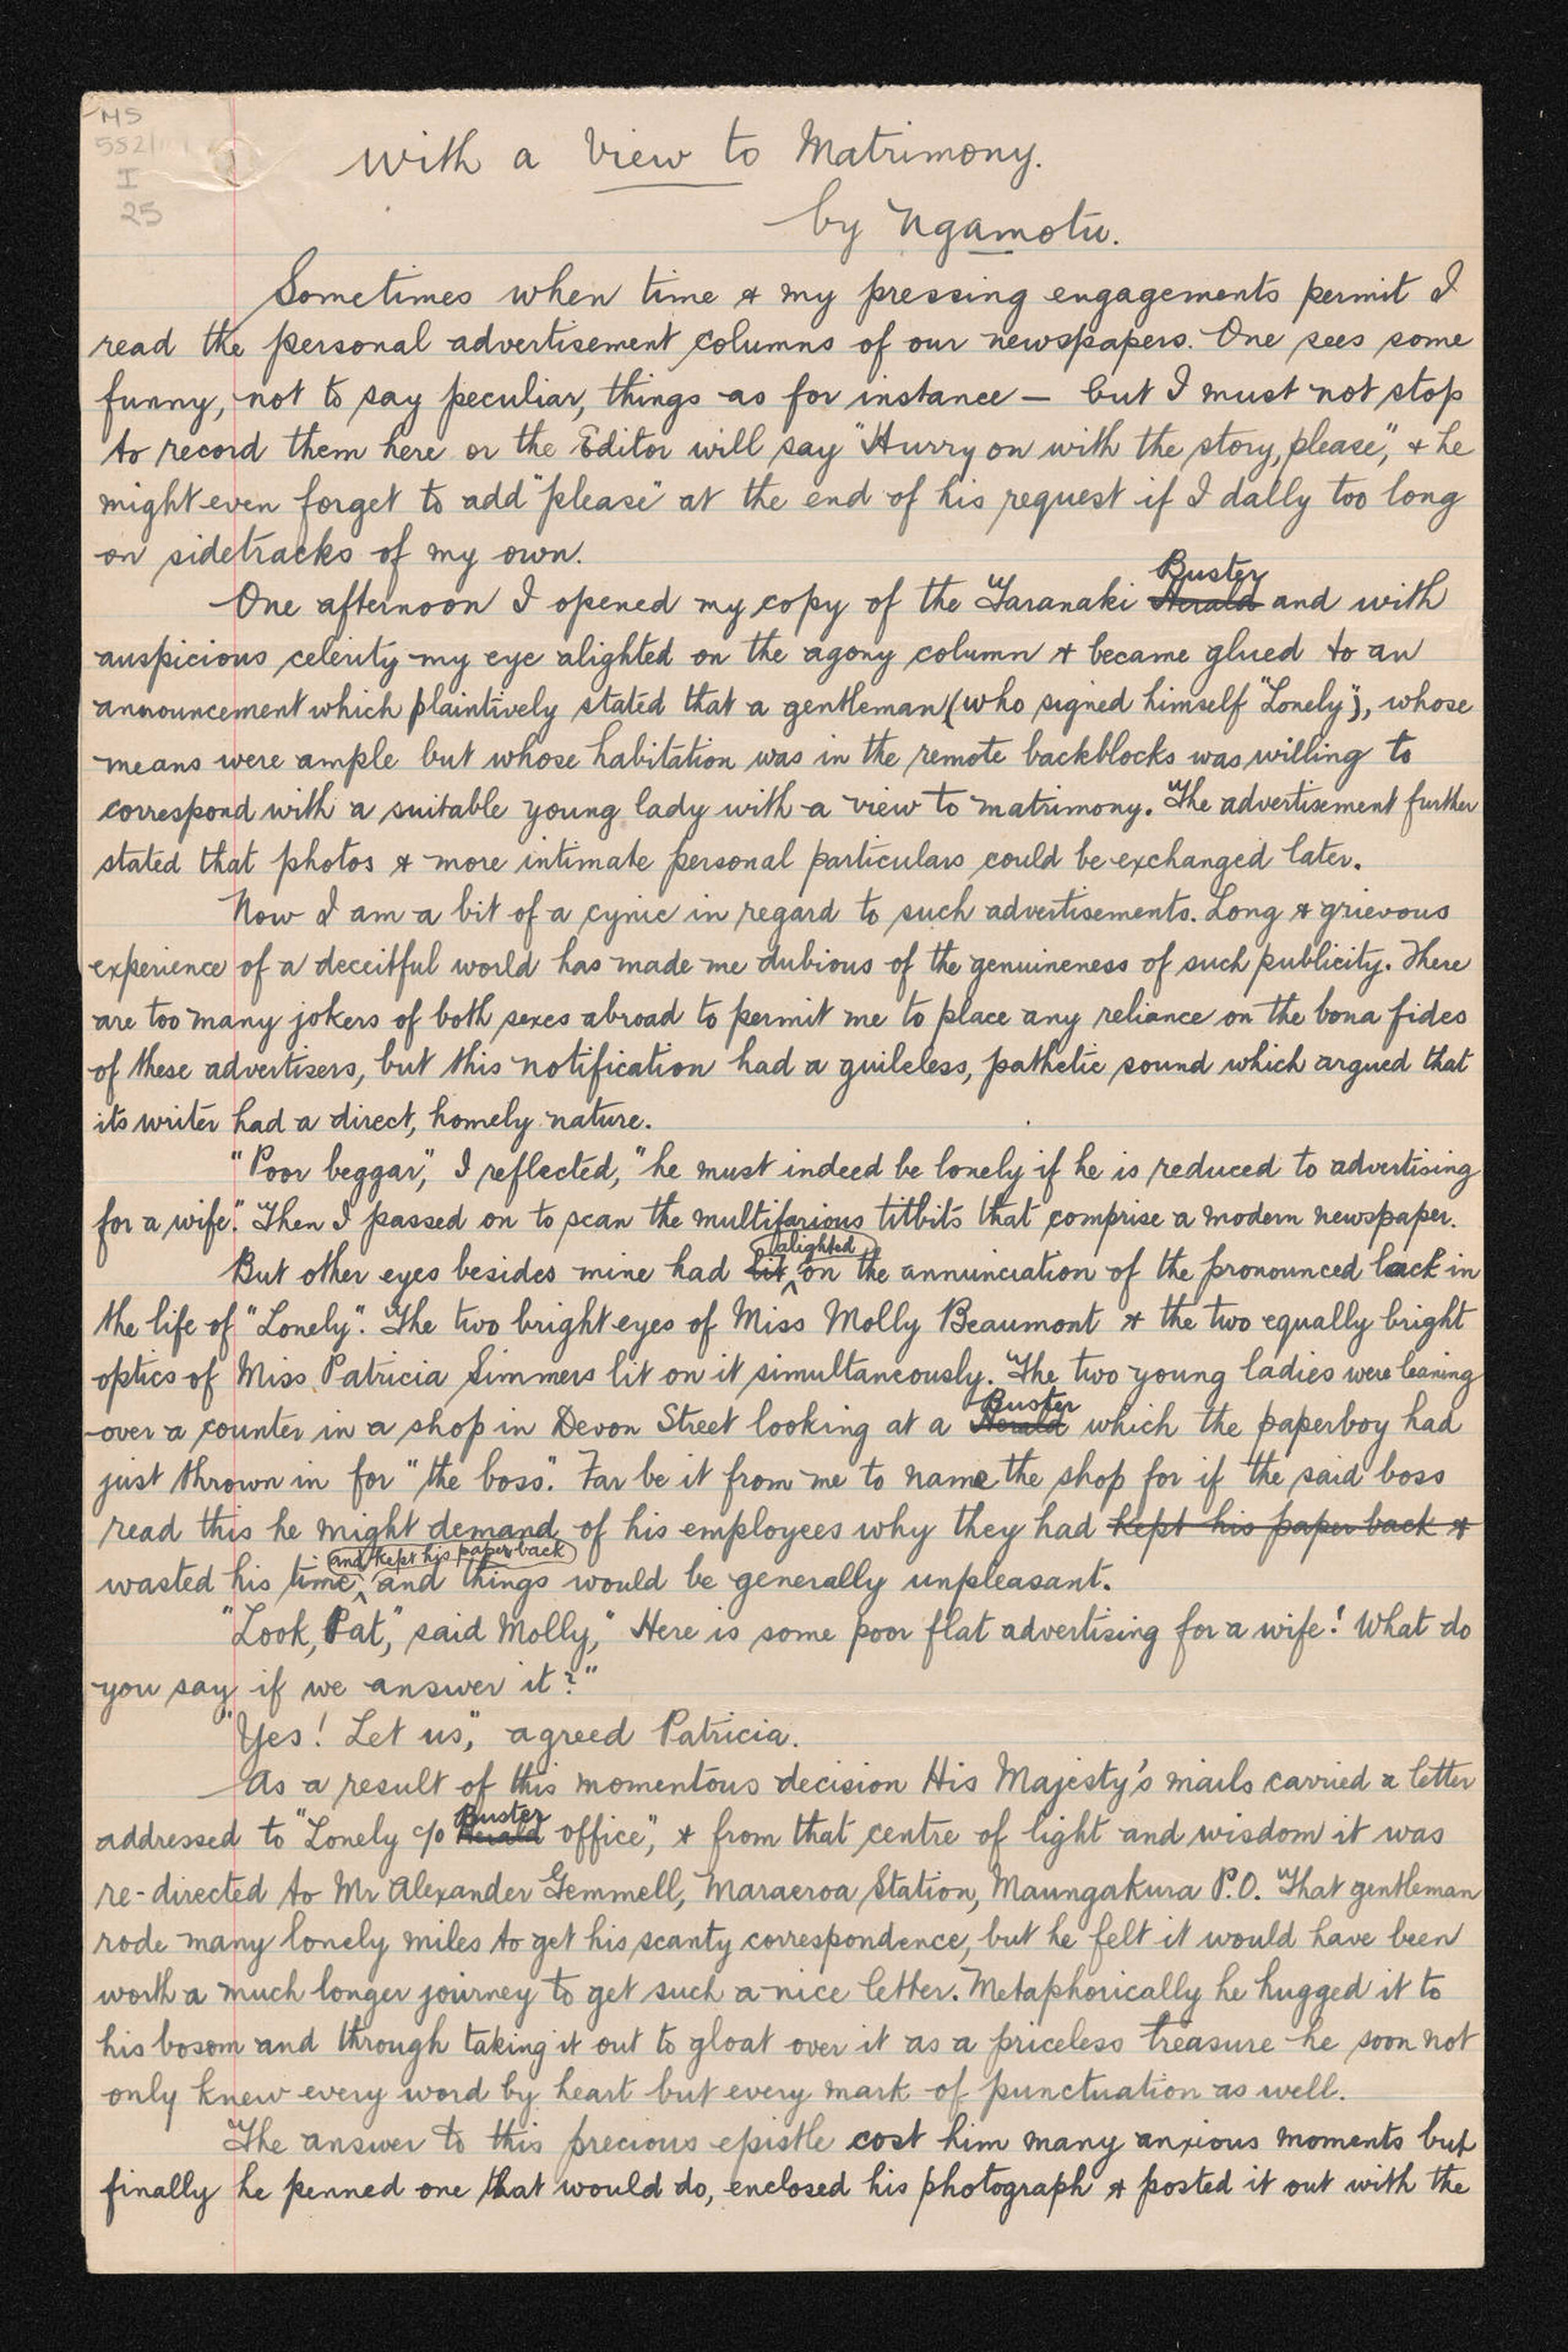 MS
552/
I
25
With a View to Matrimony.
by Ngamotu.
Sometimes when time & my pressing engagements permit I
read the personal advertisement columns of our newspapers. One sees some
funny, not to say peculiar, things as for instance — but I must not stop
to record them here or the Editor will say "Hurry on with the story, please", & he
might even forget to add "please" at the end of his request if I dally too long
on sidetracks of my own.
Buster
One afternoon I opened my copy of the Taranaki Herald and with
auspicious celerity my eye alighted on the agony column & became glued to an
announcement which plaintively stated that a gentleman (who signed himself "Lonely"), whose
means were ample but whose habitation was in the remote backblocks was willing to
correspond with a suitable young lady with a view to matrimony. The advertisement further
stated that photos & more intimate personal particulars could be exchanged later.
Now I am a bit of a cynic in regard to such advertisements. Long & grievous
experience of a deceitful world has made me dubious of the genuineness of such publicity. There
are too many jokers of both sexes abroad to permit me to place any reliance on the bona fides
of these advertisers, but this notification had a guileless, pathetic sound which argued that
its writer had a direct, homely nature.
"Poor beggar", I reflected, "he must indeed be lonely if he is reduced to advertising
for a wife". Then I passed on to scan the multifarious titbits that comprise a modern newspaper.
alighted
But other eyes besides mine had lit on the annunciation of the pronounced lack in
the life of "Lonely". The two bright eyes of Miss Molly Beaumont & the two equally bright
optics of Miss Patricia Simmers lit on it simultaneously. The two young ladies were leaning
Buster
over a counter in a shop in Devon Street looking at a Herald which the paperboy had
just thrown in for "the boss". Far be it from me to name the shop for if the said boss
read this he might demand of his employees why they had kept his paper back &
and kept his paper back
wasted his time, and things would be generally unpleasant.
"Look, Pat," said Molly, "Here is some poor flat advertising for a wife! What do
you say if we answer it?"
"Yes! Let us", agreed Patricia.
As a result of this momentous decision His Majesty's mails carried a letter
Buster
addressed to "Lonely c/o Herald office", & from that centre of light and wisdom it was
re-directed to Mr Alexander Gemmell, Maraeroa Station, Maungakura P.O. That gentleman
rode many lonely miles to get his scanty correspondence, but he felt it would have been
worth a much longer journey to get such a nice letter. Metaphorically he hugged it to
his bosom and through taking it out to gloat over it as a priceless treasure he soon not
only knew every word by heart but every mark of punctuation as well.
The answer to this precious epistle cost him many anxious moments but
finally he penned one that would do, enclosed his photograph & posted it out with the